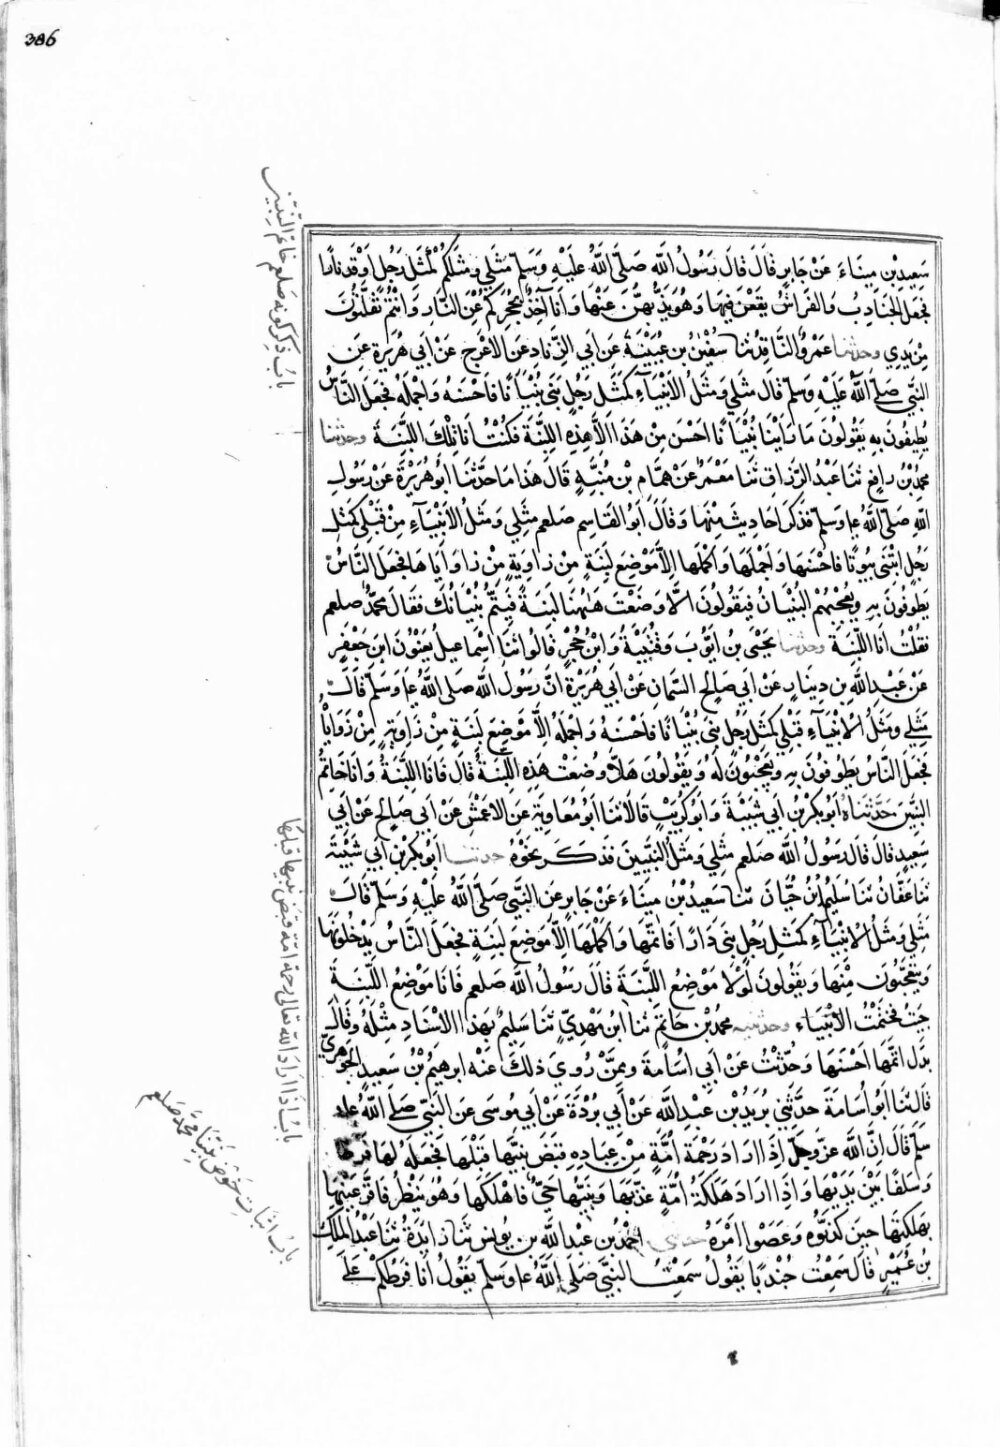 386
باب ذكر كونه صلعم خاتم النبيين
سَعِيدِ بْنِ مِينَاءَ عَنْ جَابِرٍ قَالَ قَالَ رَسُولُ اللَّهِ صَلَّى اللَّهُ عَلَيْهِ وَسَلَّمَ مَثَلِي وَمَثَلُكُمْ كَمَثَلِ رَجُلٍ أَوْقَدَ نَارًا
فَجَعَلَ الجَنَادِبُ وَالفَرَاشُ يَقَعْنَ فِيهَا وَهُوَ يَذُبُّهُنَّ عَنْهَا وَأَنَا آخِذٌ بِحُجَزِكُمْ عَنِ النَّارِ وَأَنْتُمْ تَفَلَّتُونَ
مِنْ يَدِي وحدثنا عَمْرٌو النَّاقِدُ ثنا سُفْيٰنُ بن عُيَيْنَةَ عَنْ أَبِي الزِّنَادِ عَنِ الأَعْرَجِ عَنْ أَبِي هُرَيْرَةَ عَنِ
النَّبِيِّ صَلَّى اللَّهُ عَلَيْهِ وَسَلَّمَ قَالَ مَثَلِي وَمَثَلُ الأَنْبِيَآءِ كَمَثَلِ رَجُلٍ بَنَى بُنْيَانًا فَأَحْسَنَهُ وَأَجْمَلَهُ فَجَعَلَ النَّاسُ
يُطِيفُونَ بِهِ يَقُولُونَ مَا رَأَيْنَا بُنْيَانًا أَحْسَنَ مِنْ هَذَا إِلَّا هَذِهِ اللَّبِنَةَ فَكُنْتُ أَنَا تِلْكَ اللَّبِنَةَ وحدثنا
مُحَمَّدُ بْنُ رَافِعٍ ثَنَا عَبْدُ الرَّزَّاقِ ثَنَا مَعْمَرٌ عَنْ هَمَّامِ بْنِ مُنَبِّهٍ قَالَ هَذَا مَا حَدَّثَنَا أَبُو هُرَيْرَةَ عَنْ رَسُولِ
اللَّهِ صَلَّى اللَّهُ ع‍ وَسَلَّمَ فَذَكَرَ أَحَادِيثَ مِنْهَا وَقَالَ أَبُو القَاسِمِ صلعم مَثَلِي وَمَثَلُ الأَنْبِيَآءِ مِنْ قَبْلِي كَمَثَلِ
رَجُلٍ ابْتَنَى بُيُوتًا فَأَحْسَنَهَا وَأَجْمَلَهَا وَأَكْمَلَهَا إِلَّا مَوْضِعَ لَبِنَةٍ مِنْ زَاوِيَةٍ مِنْ زَوَايَاهَا فَجَعَلَ النَّاسُ
يَطُوفُونَ بِهِ وَيُعْجِبُهُمُ البُنْيَانُ فَيَقُولُونَ أَلَّا وَضَعْتَ هٰهُنَا لَبِنَةً فَيَتِمُّ بُنْيَانُكَ فَقَالَ مُحَمَّدٌ صلعم
فَكُنْتُ أَنَا اللَّبِنَةَ وحدثنا يَحْيَى بن أَيُّوبَ وَقُتَيْبَةُ وَابْنُ حُجْرٍ قَالُوا ثَنَا إِسْمَاعِيلُ يَعْنُونَ ابنَ جَعْفَرٍ
عَنْ عَبْدِ اللَّهِ بن دِينَارٍ عَنْ أَبِي صَالِحٍ السَّمَّانِ عَنْ أَبِي هُرَيْرَةَ أَنَّ رَسُولَ اللَّهِ صَلَى اللَّهُ ع‍ وَسَلَّمَ قَالَ
مَثَلِي وَمَثَلُ الأَنْبِيَآءِ قَبْلِي كَمَثَلِ رَجُلٍ بنى بُنْيَانًا فَأَحْسَنَهُ وَأَجْمَلَهُ إِلَّا مَوْضِعَ لَبِنَةٍ مِنْ زَاوِيَةٍ مِنْ زَوَايَاهُ
فَجَعَلَ النَّاسُ يَطُوفُونَ بِهِ وَيَعْجَبُونَ لَهُ وَيَقُولُونَ هَلَّا وُضِعَتْ هَذِهِ اللَّبِنَةُ قَالَ فَأَنَا اللَّبِنَةُ وَأَنَا خَاتَمُ
النَّبِيِّينَ حَدَّثَنَاهُ أَبُو بَكْرِ بْنُ أَبِي شَيْبَةَ وَأَبُو كُرَيْبٍ قَالَا ثَنَا أَبُو مُعَاوِيَةَ عَنِ الأَعْمَشِ عَنْ أَبِي صَالِحٍ عَنْ أَبِي
سَعِيدٍ قَالَ قَالَ رَسُولُ اللَّهِ صلعم مَثَلِي وَمَثَلُ النَّبِيِّينَ فَذَكَرَ نَحْوَهُ حدثنا أَبُو بَكْرِ بْنُ أَبِي شَيْبَةَ
ثَنَا عَفَّانُ ثَنَا سَلِيمُ بْنُ حَيَّانَ ثَنَا سَعِيدُ بْنُ مِينَاءَ عَنْ جَابِرٍ عَنِ النَّبِيِّ صَلَّى اللَّهُ عَلَيْهِ وَسَلَّمَ قَالَ
مَثَلِي وَمَثَلُ الأَنْبِيَآءِ كَمَثَلِ رَجُلٍ بَنَى دَارًا فَأَتَمَّهَا وَأَكْمَلَهَا إِلَّا مَوْضِعَ لَبِنَةٍ فَجَعَلَ النَّاسُ يَدْخُلُونَهَا
وَيَتَعَجَّبُونَ مِنْهَا وَيَقُولُونَ لَوْلَا مَوْضِعُ اللَّبِنَةِ قَالَ رَسُولُ اللَّهِ صلعم فَأَنَا مَوْضِعُ اللَّبِنَةِ
جِئْتُ فَخَتَمْتُ الأَنْبِيَاءَ وحدثنيه مُحَمَّدُ بْنُ حَاتِمٍ ثَنَا ابْنُ مَهْدِيٍّ ثَنَا سَلِيمٌ بِهَذَا الإِسْنَادِ مِثْلَهُ وَقَالَ
بَدَلَ أَتَمَّهَا أَحْسَنَهَا وَحُدِّثْتُ عَنْ أَبِي أُسَامَةَ وَمِمَّنْ رَوَى ذَلِكَ عَنْهُ إِبْرهِيمُ بْنُ سَعِيدٍ الجَوْهَرِيُّ
قَالَ ثَنَا أَبُو أُسَامَةَ حَدَّثَنِي بُرَيْدُ بْنُ عَبْدِ اللَّهِ عَنْ أَبِي بُرْدَةَ عَنْ أَبِي مُوسَى عَنِ النَّبِيِّ صَلَّى اللَّهُ ع‍
سَلَّمَ قَالَ إِنَّ اللَّهَ عَزَّ وَجَلَّ إِذَا أَرَادَ رَحْمَةَ أُمَّةٍ مِنْ عِبَادِهِ قَبَضَ نَبِيَّهَا قَبْلَهَا فَجَعَلَهُ لَهَا فَرَطًا
وَسَلَفًا بَيْنَ يَدَيْهَا وَإِذَا أَرَادَ هَلَكَةَ أُمَّةٍ عَذَّبَهَا وَنَبِيُّهَا حَيٌّ فَأَهْلَكَهَا وَهُوَ يَنْظُرُ فَأَقَرَّ عَيْنَهُ
بِهَلَكَتِهَا حِينَ كَذَّبُوهُ وَعَصَوْا أَمْرَهُ حدثني أَحْمَدُ بْنُ عَبْدِ اللَّهِ بن يُونُس ثَنَا زَائِدَةُ ثَنَا عَبْدُ المَلِكِ
بْنُ عُمَيْرٍ قَالَ سَمِعْتُ جُنْدُبًا يَقُولُ سَمِعْتُ النَّبِيَّ صَلَّى اللَّهُ ع‍ وَسَلَّمَ يَقُولُ أَنَا فَرَطُكُمْ عَلَى
باب اذا اراد الله تعالى رحمة امة قبض نبيها قبلها
باب اثبات حوض نبينا محمد صلعم